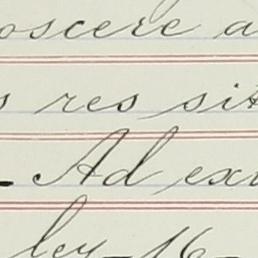 oscere a
s res sit
- Ad ex
ley-16-